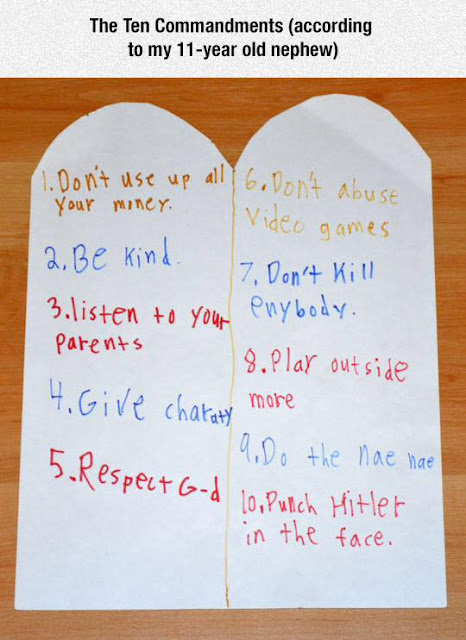 The Ten Commandments (according
to my 11-year old nephew)
1. Don't use up all
your money.
2. Be kind.
3. listen to your
parents
4. Give charaty
5. Respect G-d
6. Don't abuse
video games
7. Don't Kill
enybody.
8. Play outside
more
9. Do the nae nae
10. Punch Hitler
in the face.